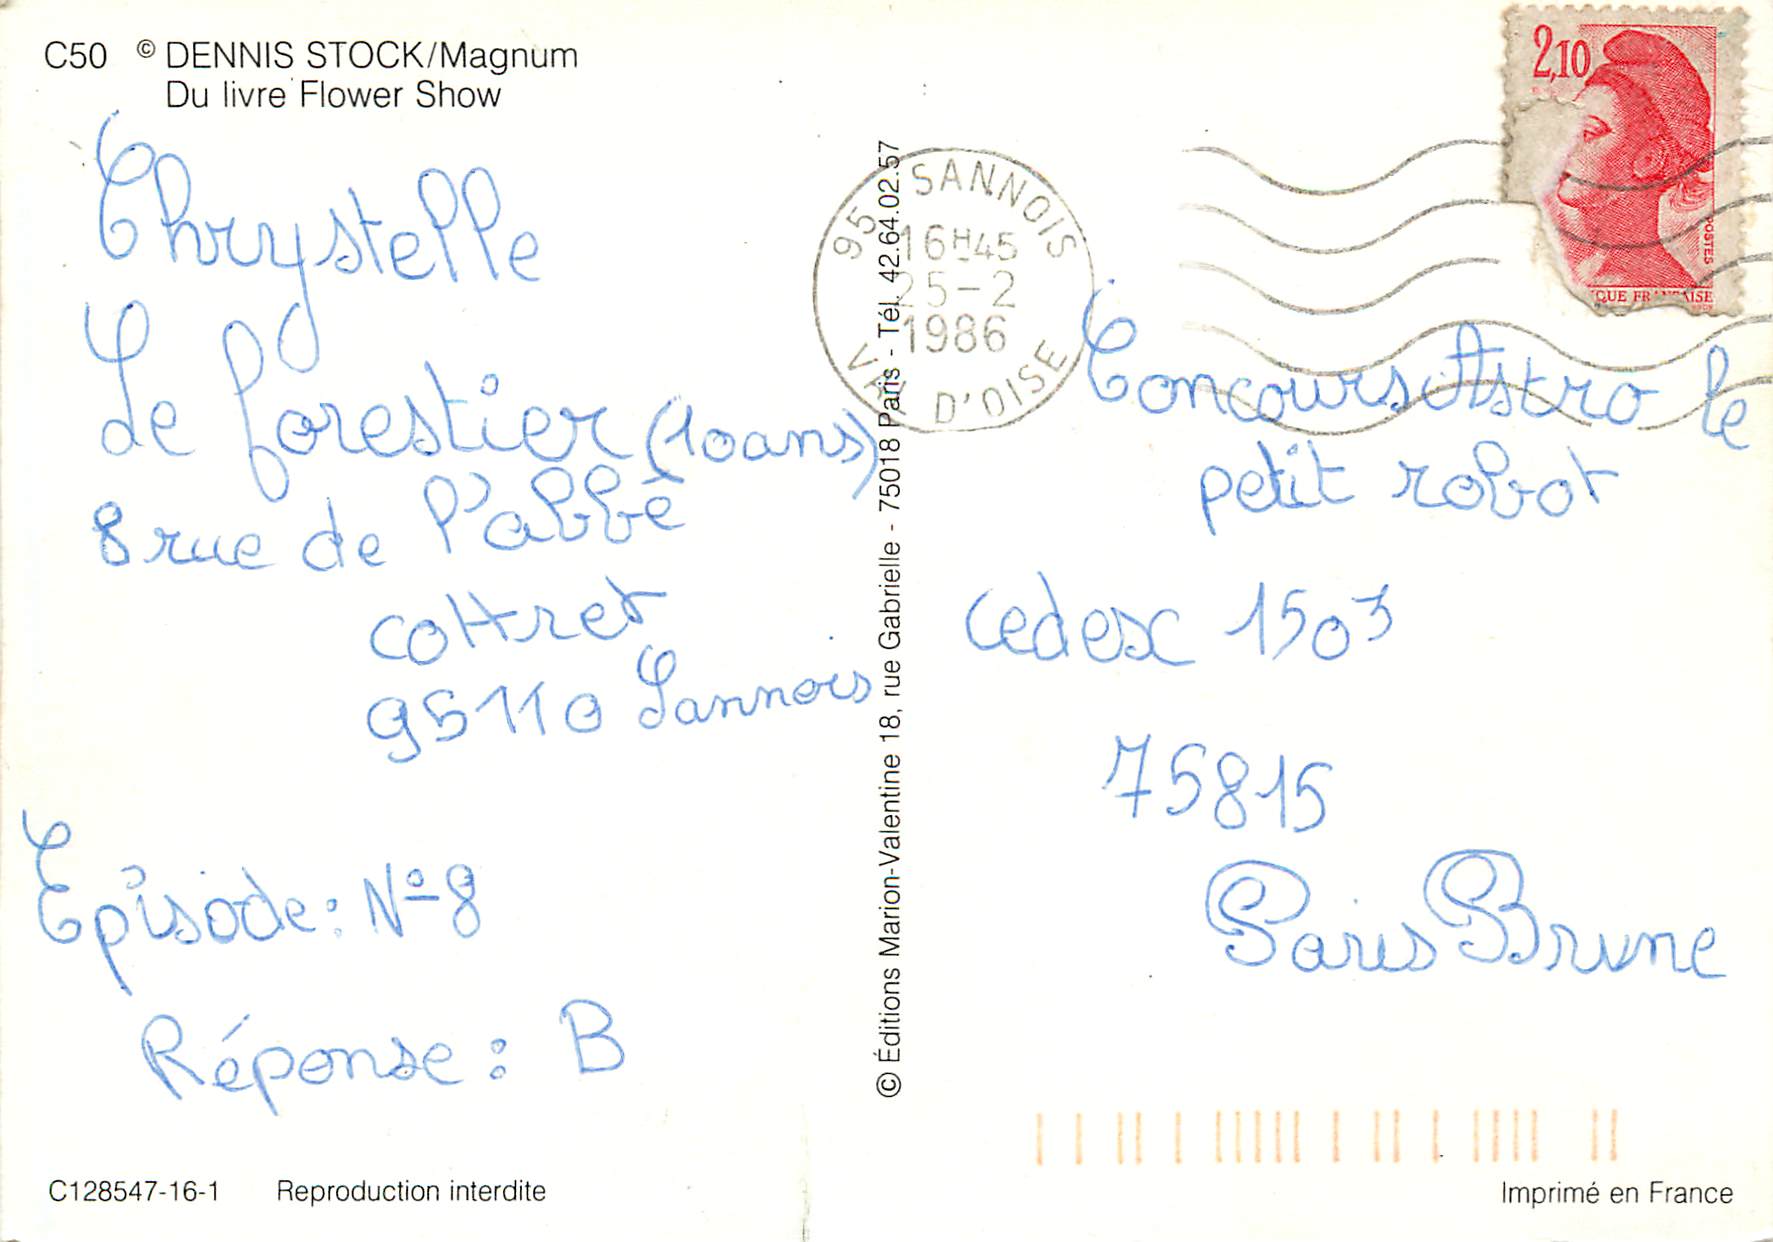 C50 © DENNIS STOCK/Magnum
Du livre Flower Show
Chrystelle
Le forestier (10ans)
8 rue de l'abbé
cottret
95110 Sannois
Episode: N°8
Réponse : B
C128547-16-1 Reproduction interdite
© Éditions Marion-Valentine 18, rue Gabrielle - 75018 Paris - Tél. 42.64.02.57
95 SANNOIS
16H45
25-2
1986
VAL D'OISE
2,10
POSTES
QUE FRANÇAISE
Concours Astro le
petit robot
Cedex 1503
75815
Paris Brune
Imprimé en France